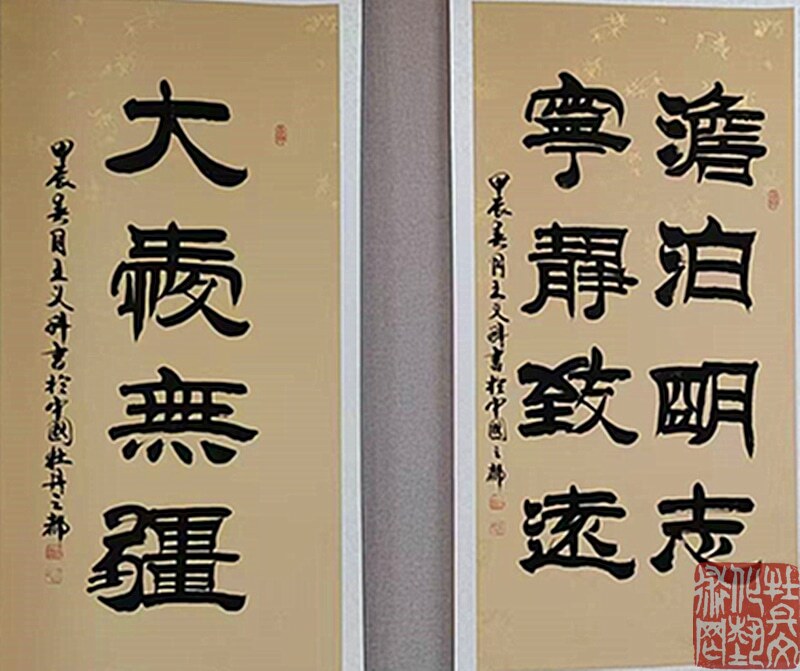 澹泊明志
寧靜致遠
甲辰春月王文科書於中國之都
大愛無疆
甲辰春月王文科書於中國牡丹之都
牡丹文
化藝
術网